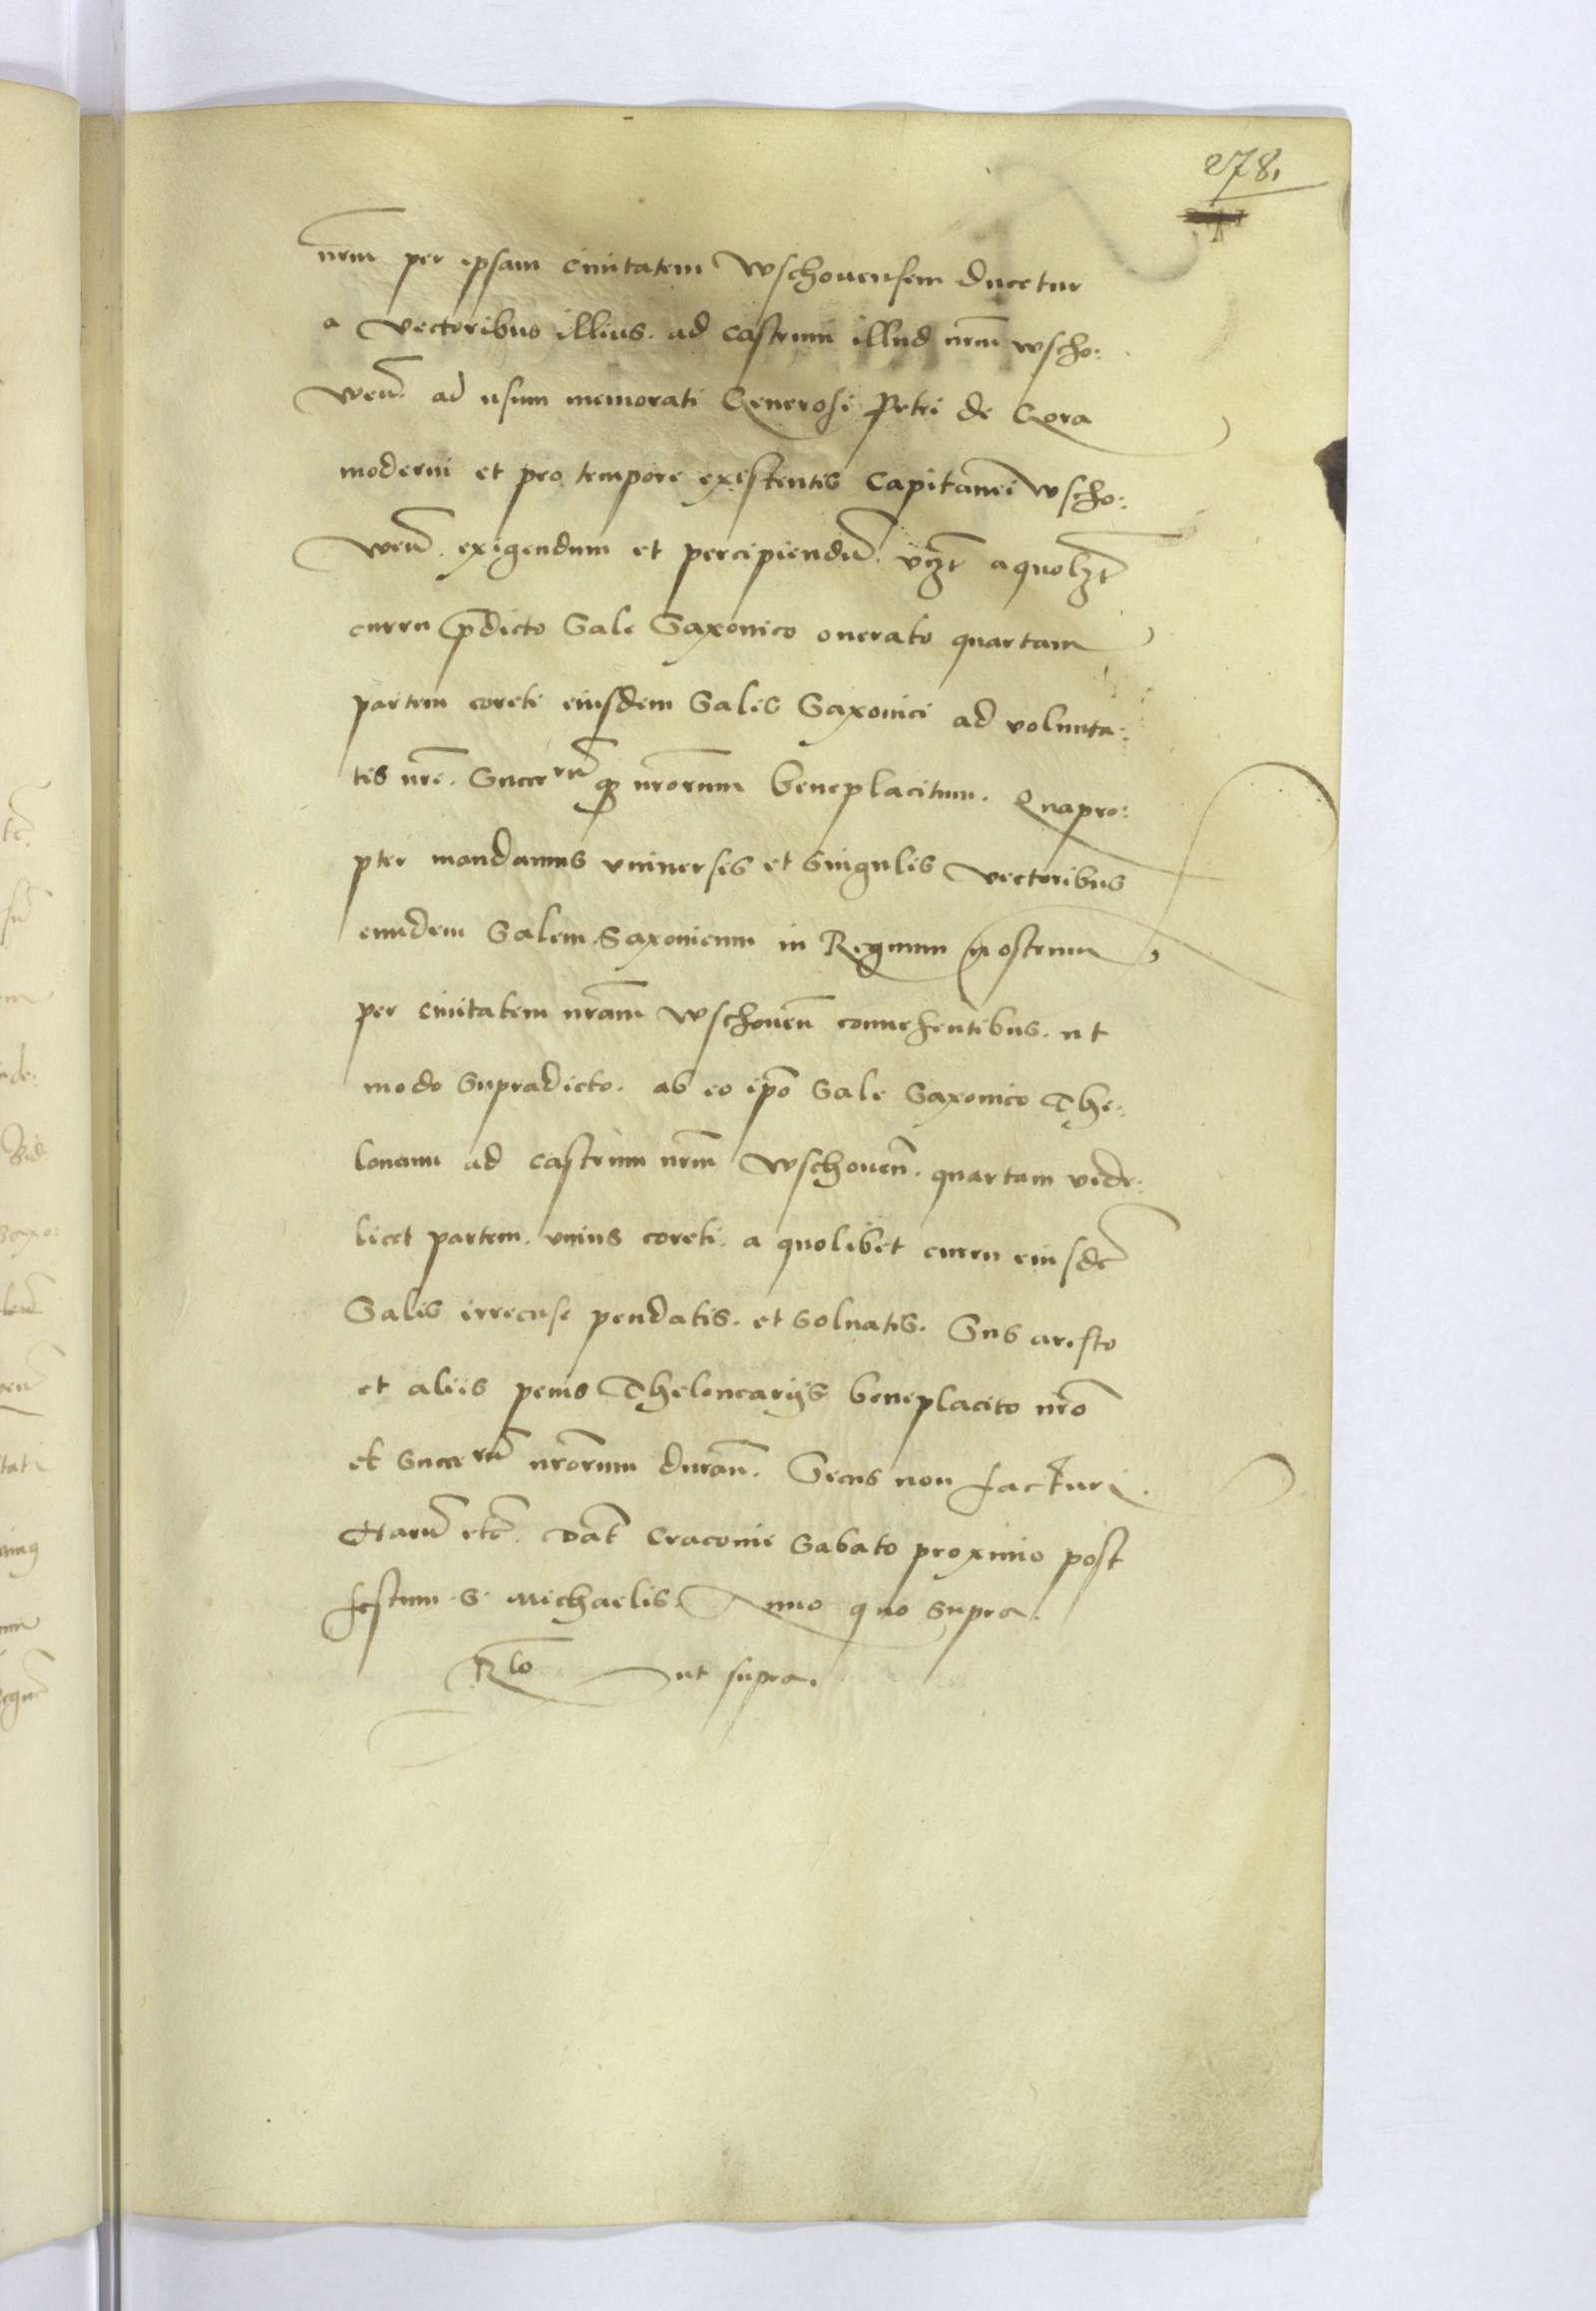 278.
nrm per ipsam Civitatem Wschovensem ducetur
a vectoribus illius. ad castrum illud nrm wscho:
wen. ad usum memorati Generosi Petri de Gora
moderni et pro tempore existentis Capitanei wscho:
wen. exigendum et percipiendu. vczt a quolzt
curru pdicto Sale Saxonico onerato quartam
partem coreti eiusdem Salis Saxonici ad volunta:
tis nre. Succrum q nrorum beneplacitum. Quapro:
pter mandamus vniversis et singulis vectoribus
eundem Salem Saxonicum in Regnum nostrum
per civitatem nram Wschoven convehentibus. ut
modo supradicto. ab eo ipo Sale Saxonico The:
loneum ad castrum nrm Wschoven. quartam vide:
licet partem. vnius coreti. a quolibet curru eiusde
Salis irrecuse pendatis. et solvatis. Sub aresto
et aliis penis Thelonearijs beneplacito nro
et Succrum nrorum duran. Secus non facturi.
Haru etc. Dat Cracovie Sabato proximo post
festum S. Michaelis. Anno quo supra.
Rlo ut supra.